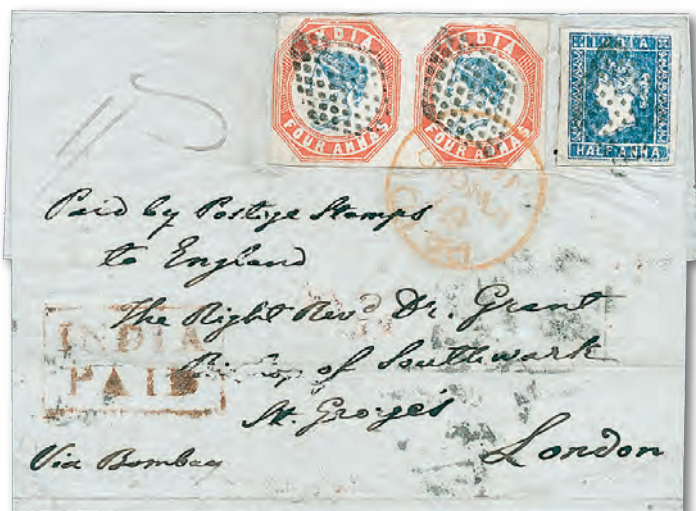 INDIA
FOUR ANNAS
INDIA
FOUR ANNAS
INDIA
HALF ANNA
Paid by Postage Stamps
to England
The Right Revd Dr. Grant
Bishop of Southwark
St. George's
London
INDIA
PAID
Via Bombay